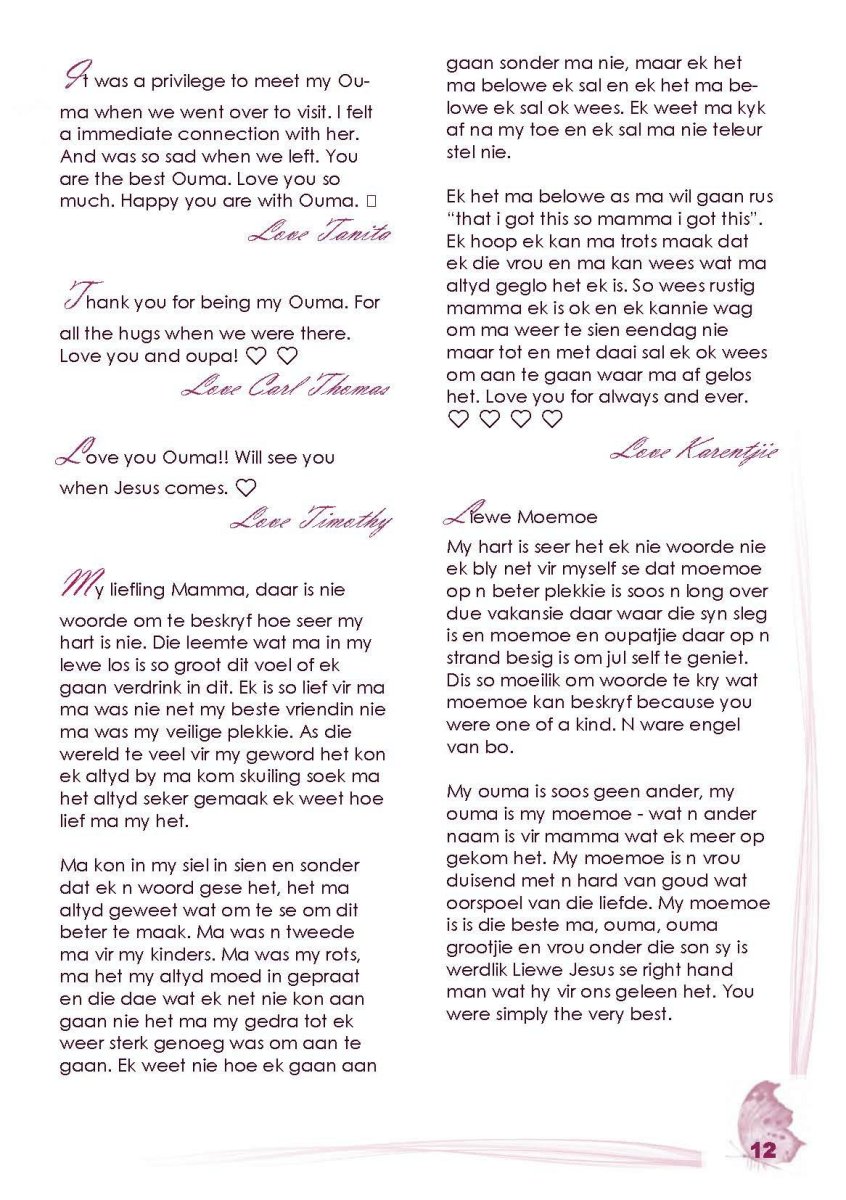 It was a privilege to meet my Ou-
ma when we went over to visit. I felt
a immediate connection with her.
And was so sad when we left. You
are the best Ouma. Love you so
much. Happy you are with Ouma. 
Love Tanita
Thank you for being my Ouma. For
all the hugs when we were there.
Love you and oupa! ♡ ♡
Love Carl Thomas
Love you Ouma!! Will see you
when Jesus comes. ♡
Love Timothy
My liefling Mamma, daar is nie
woorde om te beskryf hoe seer my
hart is nie. Die leemte wat ma in my
lewe los is so groot dit voel of ek
gaan verdrink in dit. Ek is so lief vir ma
ma was nie net my beste vriendin nie
ma was my veilige plekkie. As die
wereld te veel vir my geword het kon
ek altyd by ma kom skuiling soek ma
het altyd seker gemaak ek weet hoe
lief ma my het.
Ma kon in my siel in sien en sonder
dat ek n woord gese het, het ma
altyd geweet wat om te se om dit
beter te maak. Ma was n tweede
ma vir my kinders. Ma was my rots,
ma het my altyd moed in gepraat
en die dae wat ek net nie kon aan
gaan nie het ma my gedra tot ek
weer sterk genoeg was om aan te
gaan. Ek weet nie hoe ek gaan aan
gaan sonder ma nie, maar ek het
ma belowe ek sal en ek het ma be-
lowe ek sal ok wees. Ek weet ma kyk
af na my toe en ek sal ma nie teleur
stel nie.
Ek het ma belowe as ma wil gaan rus
“that i got this so mamma i got this”.
Ek hoop ek kan ma trots maak dat
ek die vrou en ma kan wees wat ma
altyd geglo het ek is. So wees rustig
mamma ek is ok en ek kannie wag
om ma weer te sien eendag nie
maar tot en met daai sal ek ok wees
om aan te gaan waar ma af gelos
het. Love you for always and ever.
♡ ♡ ♡ ♡
Love Karentjie
Liewe Moemoe
My hart is seer het ek nie woorde nie
ek bly net vir myself se dat moemoe
op n beter plekkie is soos n long over
due vakansie daar waar die syn sleg
is en moemoe en oupatjie daar op n
strand besig is om jul self te geniet.
Dis so moeilik om woorde te kry wat
moemoe kan beskryf because you
were one of a kind. N ware engel
van bo.
My ouma is soos geen ander, my
ouma is my moemoe - wat n ander
naam is vir mamma wat ek meer op
gekom het. My moemoe is n vrou
duisend met n hard van goud wat
oorspoel van die liefde. My moemoe
is is die beste ma, ouma, ouma
grootjie en vrou onder die son sy is
werdlik Liewe Jesus se right hand
man wat hy vir ons geleen het. You
were simply the very best.
12